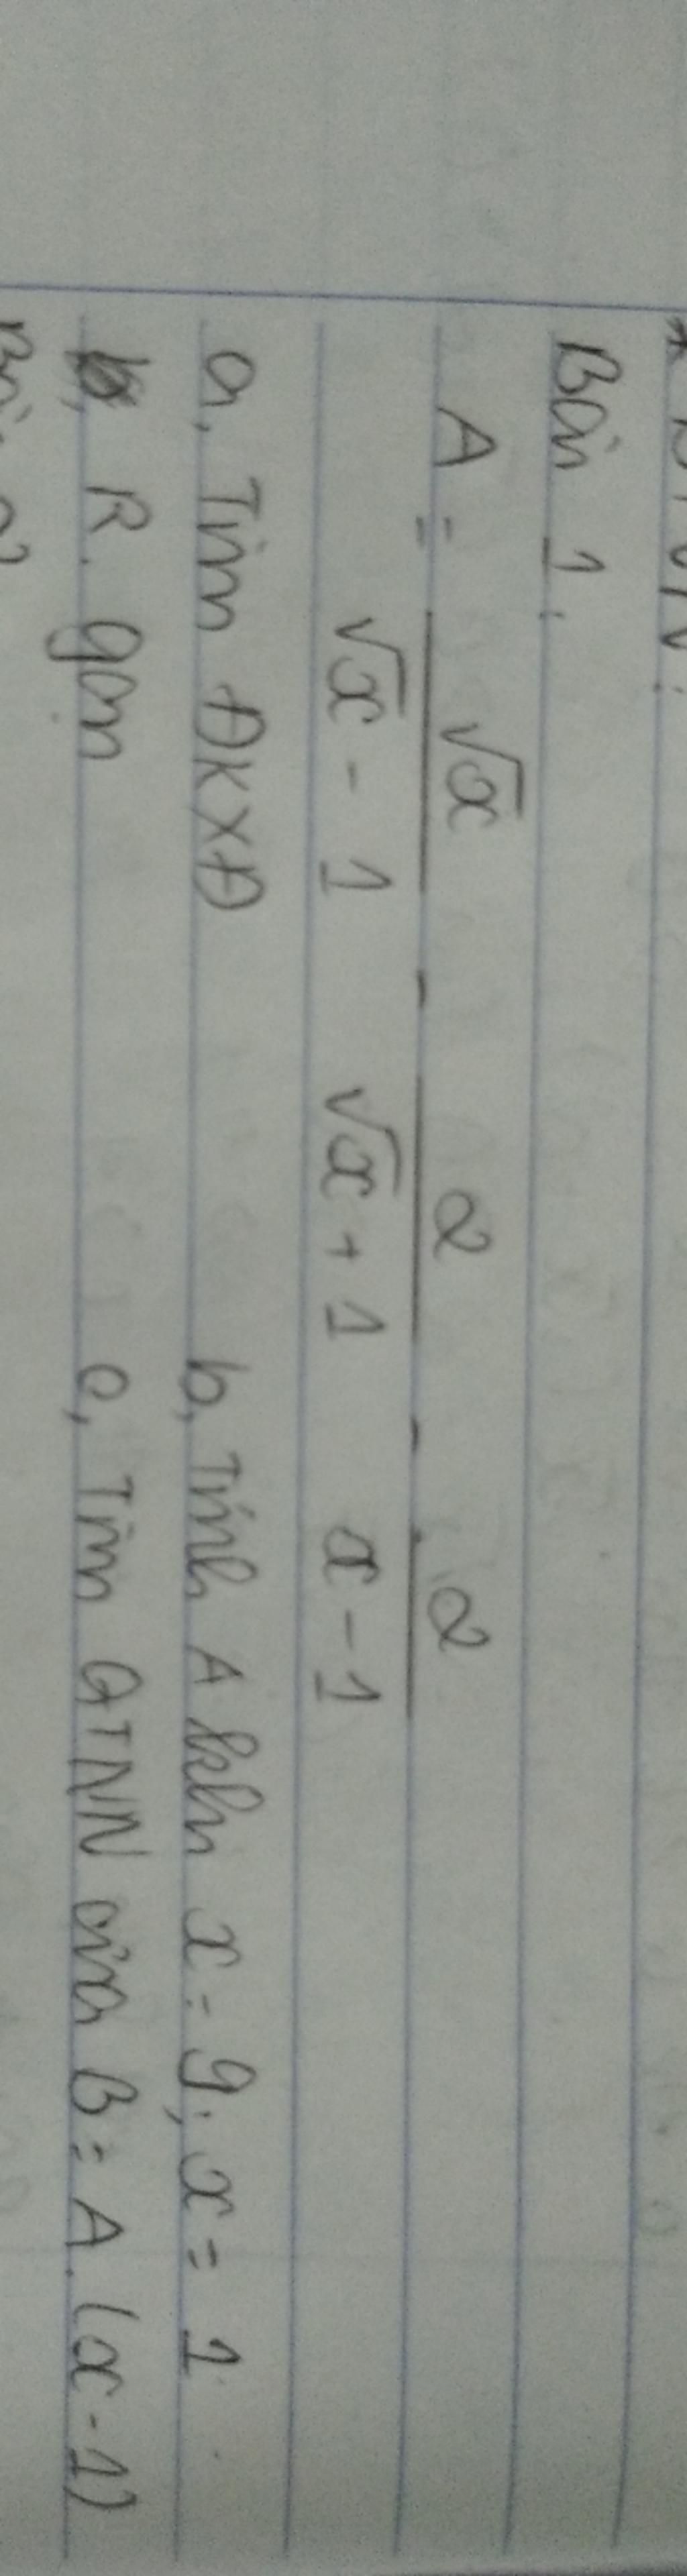 Bài 1.
A = √x / (√x - 1) - 2 / (√x + 1) - 2 / (x - 1)
a, Tìm ĐKXĐ b, Tính A khi x = 9; x = 1
b, R. gọn c, Tìm GTNN của B = A. (x - 1)